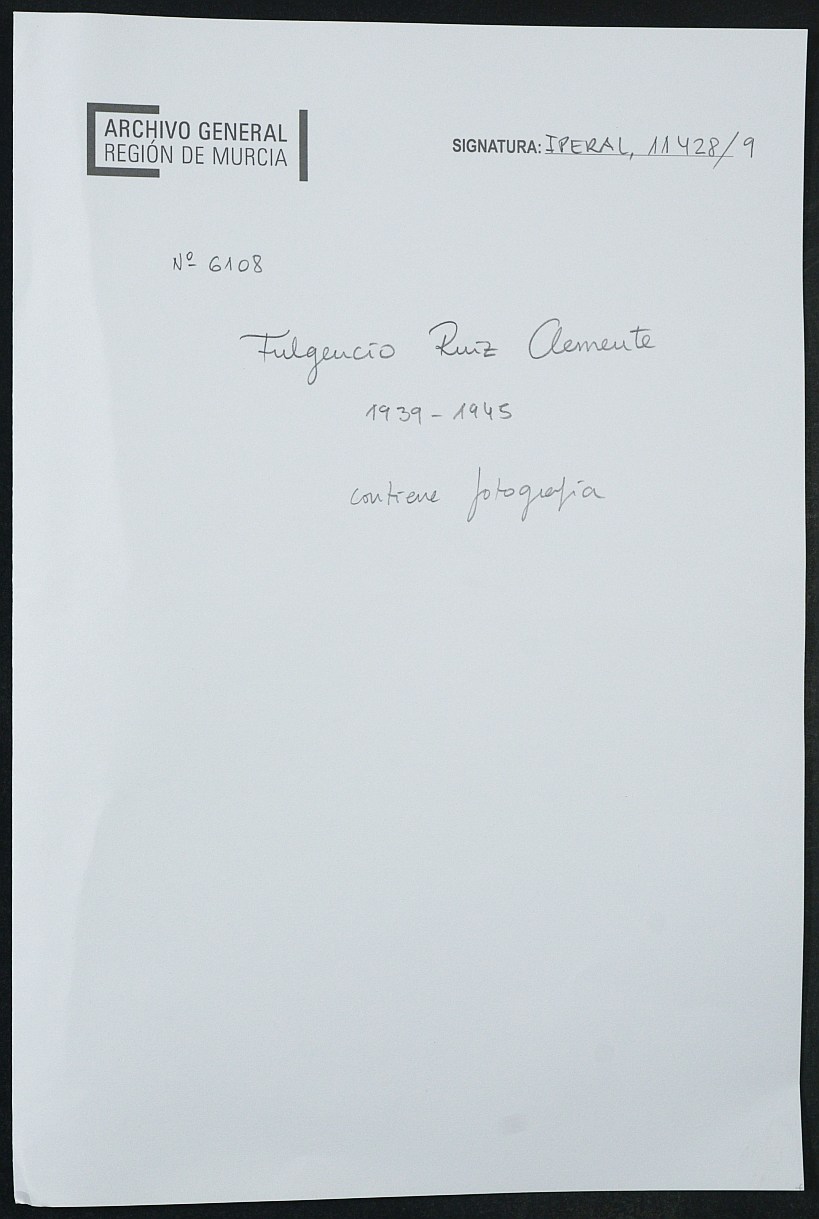 ARCHIVO GENERAL
REGIÓN DE MURCIA
SIGNATURA: IPERAL, 11428/9
Nº 6108
Fulgencio Ruiz Clemente
1939 - 1945
contiene fotografía